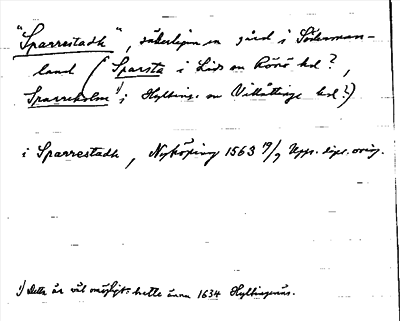 "Sparrestadh", säkerligen en gård i Söderman-
land (Sparsta i Lids en Rönö hd?,
Sparreholm 1) i Hyltinge en Villåttinge hd?)
i Sparrestadh, Nyköping 1563 19/9 Upps. dipl. orig.
1) Detta är väl omöjligt: hette ännu 1634 Hyltingenäs.